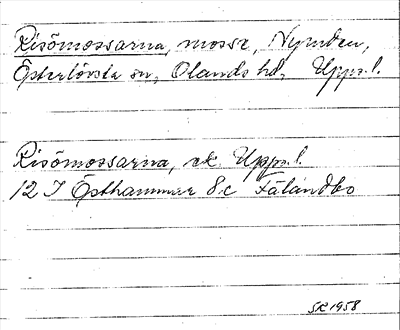 Risömossarna, mosse,
Österlövsta sn, Olands hd, Upps. l.
Risömossarna, ek. Upps. l.
12 I Östhammar 8 c Fälandbo
SR 1958